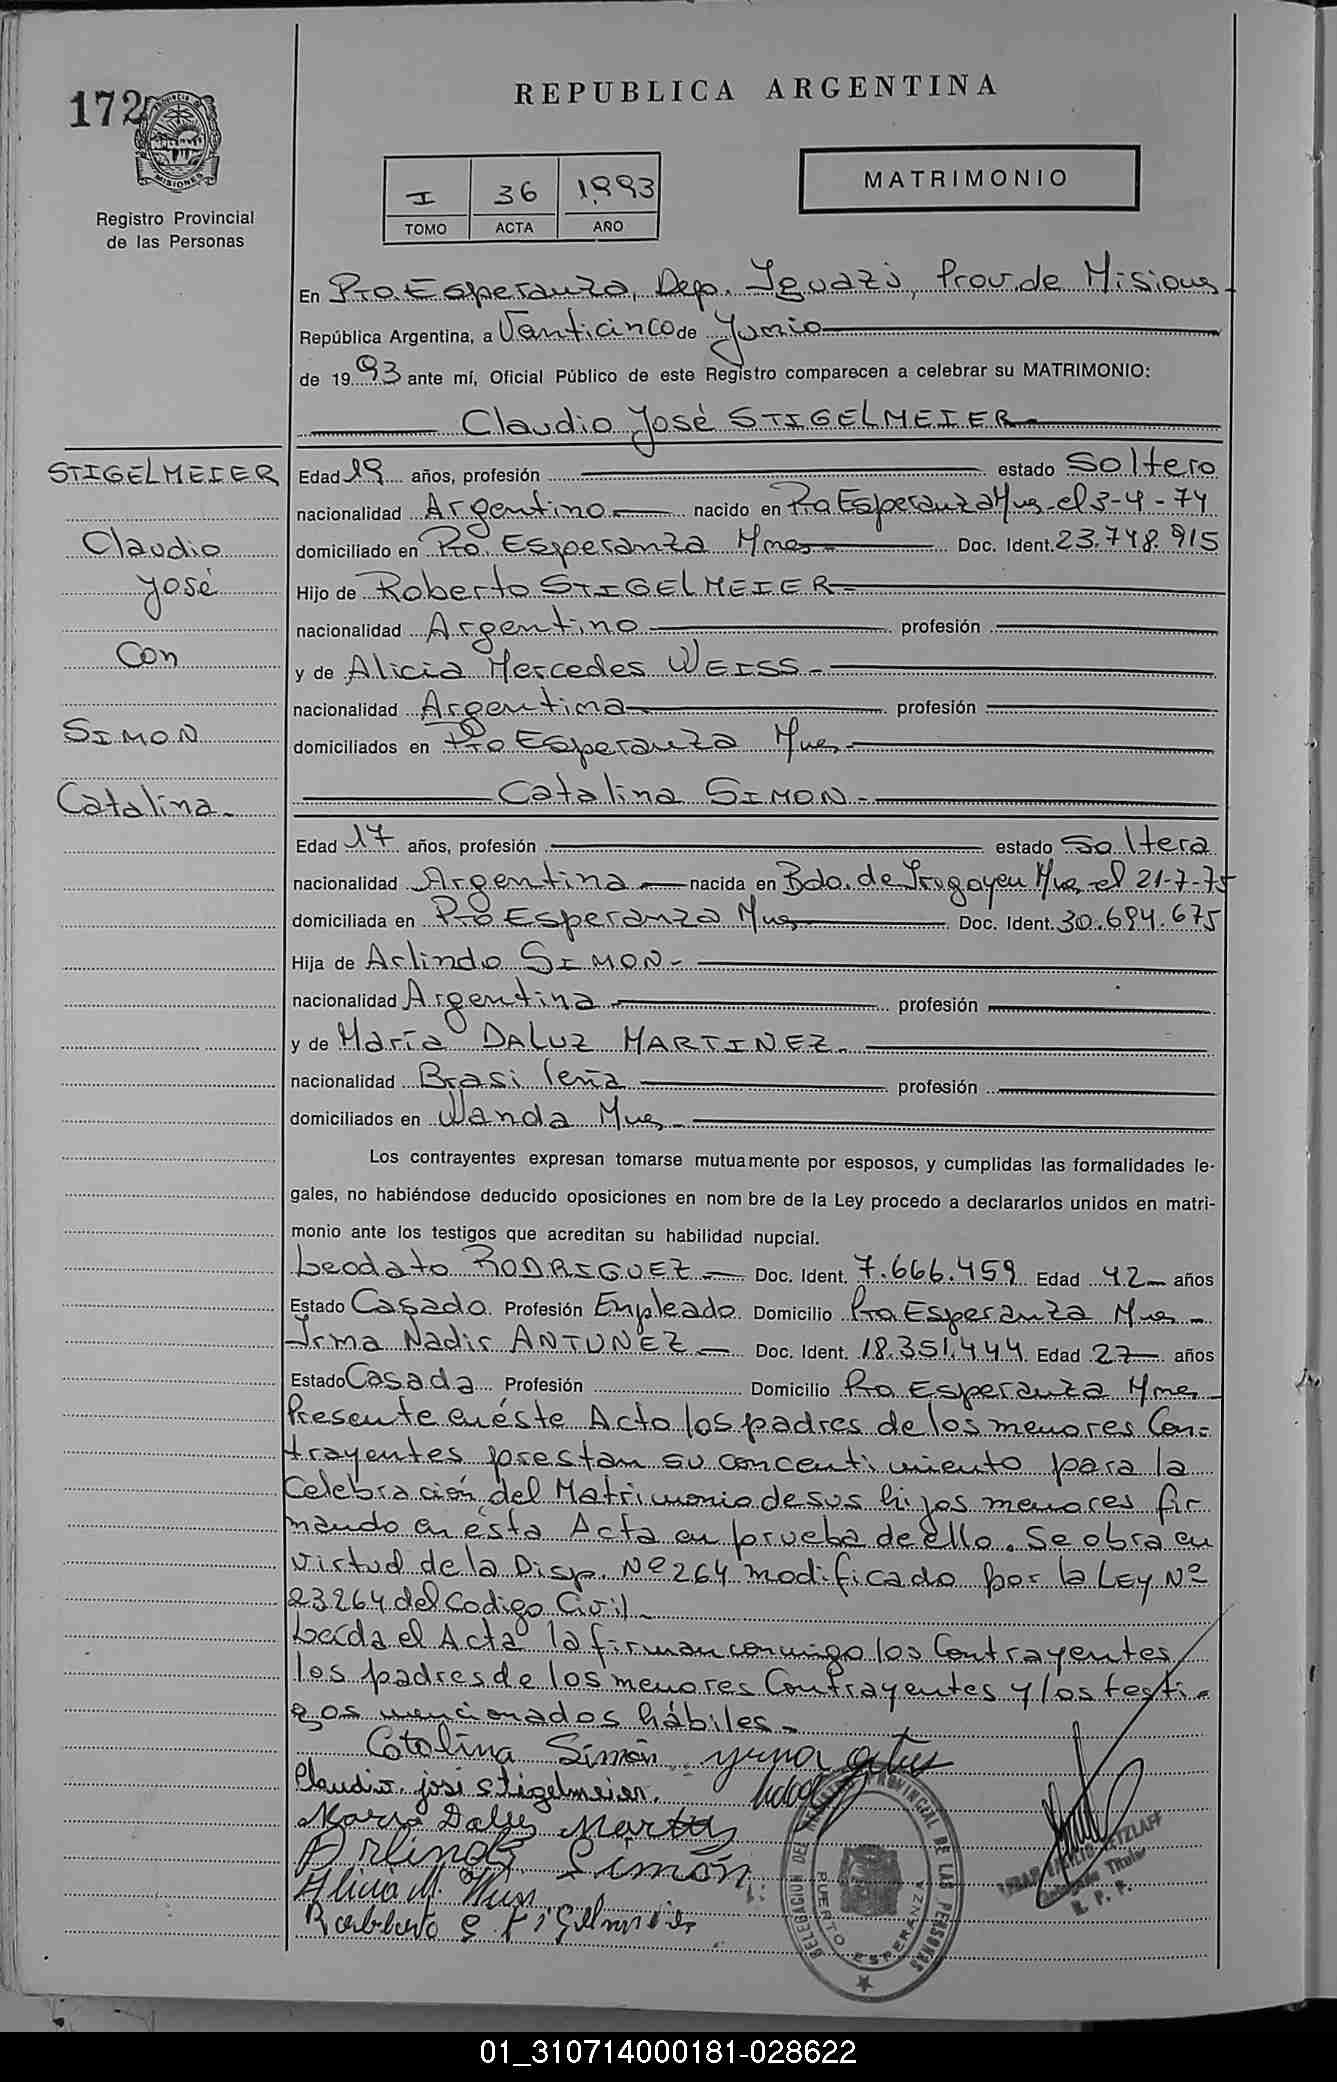 172
PROVINCIA DE MISIONES
Registro Provincial
de las Personas
REPUBLICA ARGENTINA
I 36 1993
TOMO ACTA AÑO
MATRIMONIO
En Pto. Esperanza, Dep. Iguazú, Prov. de Misiones-
República Argentina, a Venticinco de Junio
de 1993 ante mí, Oficial Público de este Registro comparecen a celebrar su MATRIMONIO:
Claudio José STIGELMEIER-
STIGELMEIER
Claudio
José
Con
SIMON
Catalina-
Edad 19 años, profesión estado Soltero
nacionalidad Argentino nacido en Pto Esperanza Mnes el 3-4-74
domiciliado en Pto. Esperanza Mnes- Doc. Ident. 23.748.915
Hijo de Roberto STIGELMEIER-
nacionalidad Argentino profesión
y de Alicia Mercedes WEISS-
nacionalidad Argentina profesión
domiciliados en Pto Esperanza Mnes-
Catalina SIMON-
Edad 17 años, profesión estado Soltera
nacionalidad Argentina nacida en Bdo. de Irogoyen Mnes el 21-7-75
domiciliada en Pto Esperanza Mnes Doc. Ident. 30.694.675
Hija de Arlindo SIMON-
nacionalidad Argentina profesión
y de María DALUZ MARTINEZ-
nacionalidad Brasileña profesión
domiciliados en Wanda Mnes-
Los contrayentes expresan tomarse mutuamente por esposos, y cumplidas las formalidades le-
gales, no habiéndose deducido oposiciones en nom bre de la Ley procedo a declararlos unidos en matri-
monio ante los testigos que acreditan su habilidad nupcial.
Leodato RODRIGUEZ- Doc. Ident. 7.666.459 Edad 42 años
Estado Casado Profesión Empleado Domicilio Pto Esperanza Mnes-
Irma Nadir ANTUNEZ- Doc. Ident. 18.351.444 Edad 27 años
Estado Casada Profesión Domicilio Pto Esperanza Mnes
Presente en éste Acto los padres de los menores Con-
trayentes prestan su concentimiento para la
Celebración del Matrimonio de sus hijos menores fir
mando en ésta Acta en prueba de ello. Se obra en
virtud de la Disp. Nº 264 modificado por la LEY Nº
23264 del Codigo Civil-
Leída el Acta la firman conmigo los Contrayentes
los padres de los menores Contrayentes y los testi-
gos mencionados hábiles-
Catalina Simón
Claudio josé stigelmeier.
Maria Daluz Martins
Arlindo Simón
Alicia M. Weiss
Robberto Stigelmeier
DELEGACION DEL REGISTRO PROVINCIAL DE LAS PERSONAS
PUERTO ESPERANZA
Titular
R. P. P.
01_310714000181-028622